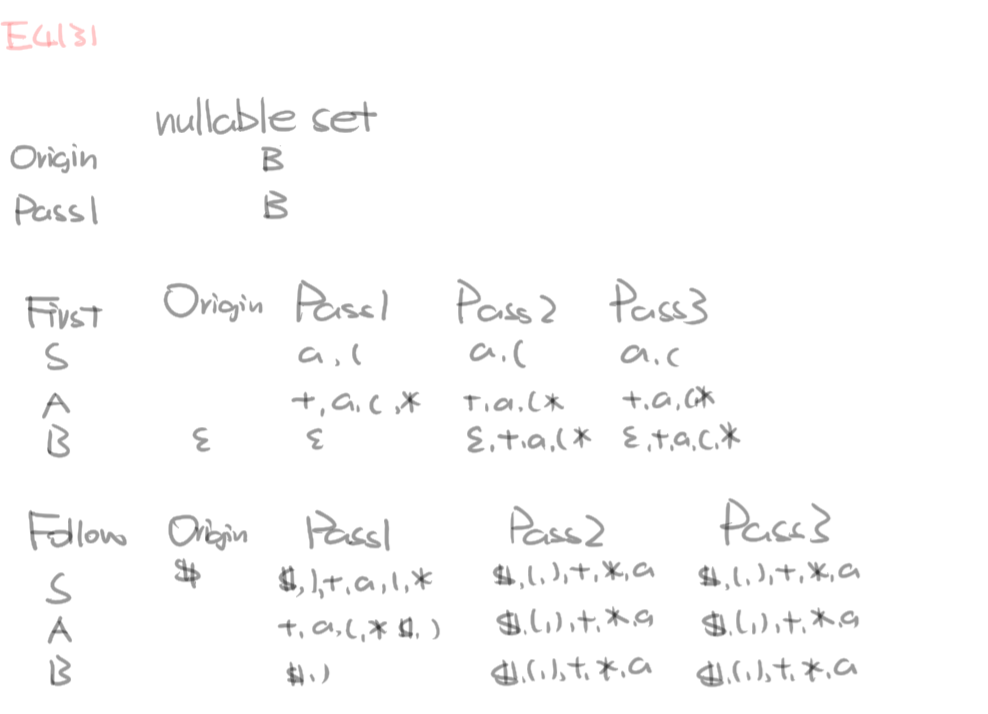 E4131
nullable set
Origin B
Pass1 B
First Origin Pass1 Pass2 Pass3
S a,( a,( a,(
A +,a,(,* +,a,(* +,a,(*
B ε ε ε,+,a,(* ε,+,a,(,*
Follow Origin Pass1 Pass2 Pass3
S $ $,),+,a,(,* $,(,),+,*,a $,(,),+,*,a
A +,a,(,*$,) $,(,),+,*,a $,(,),+,*,a
B $,) $,(,),+,*,a $,(,),+,*,a